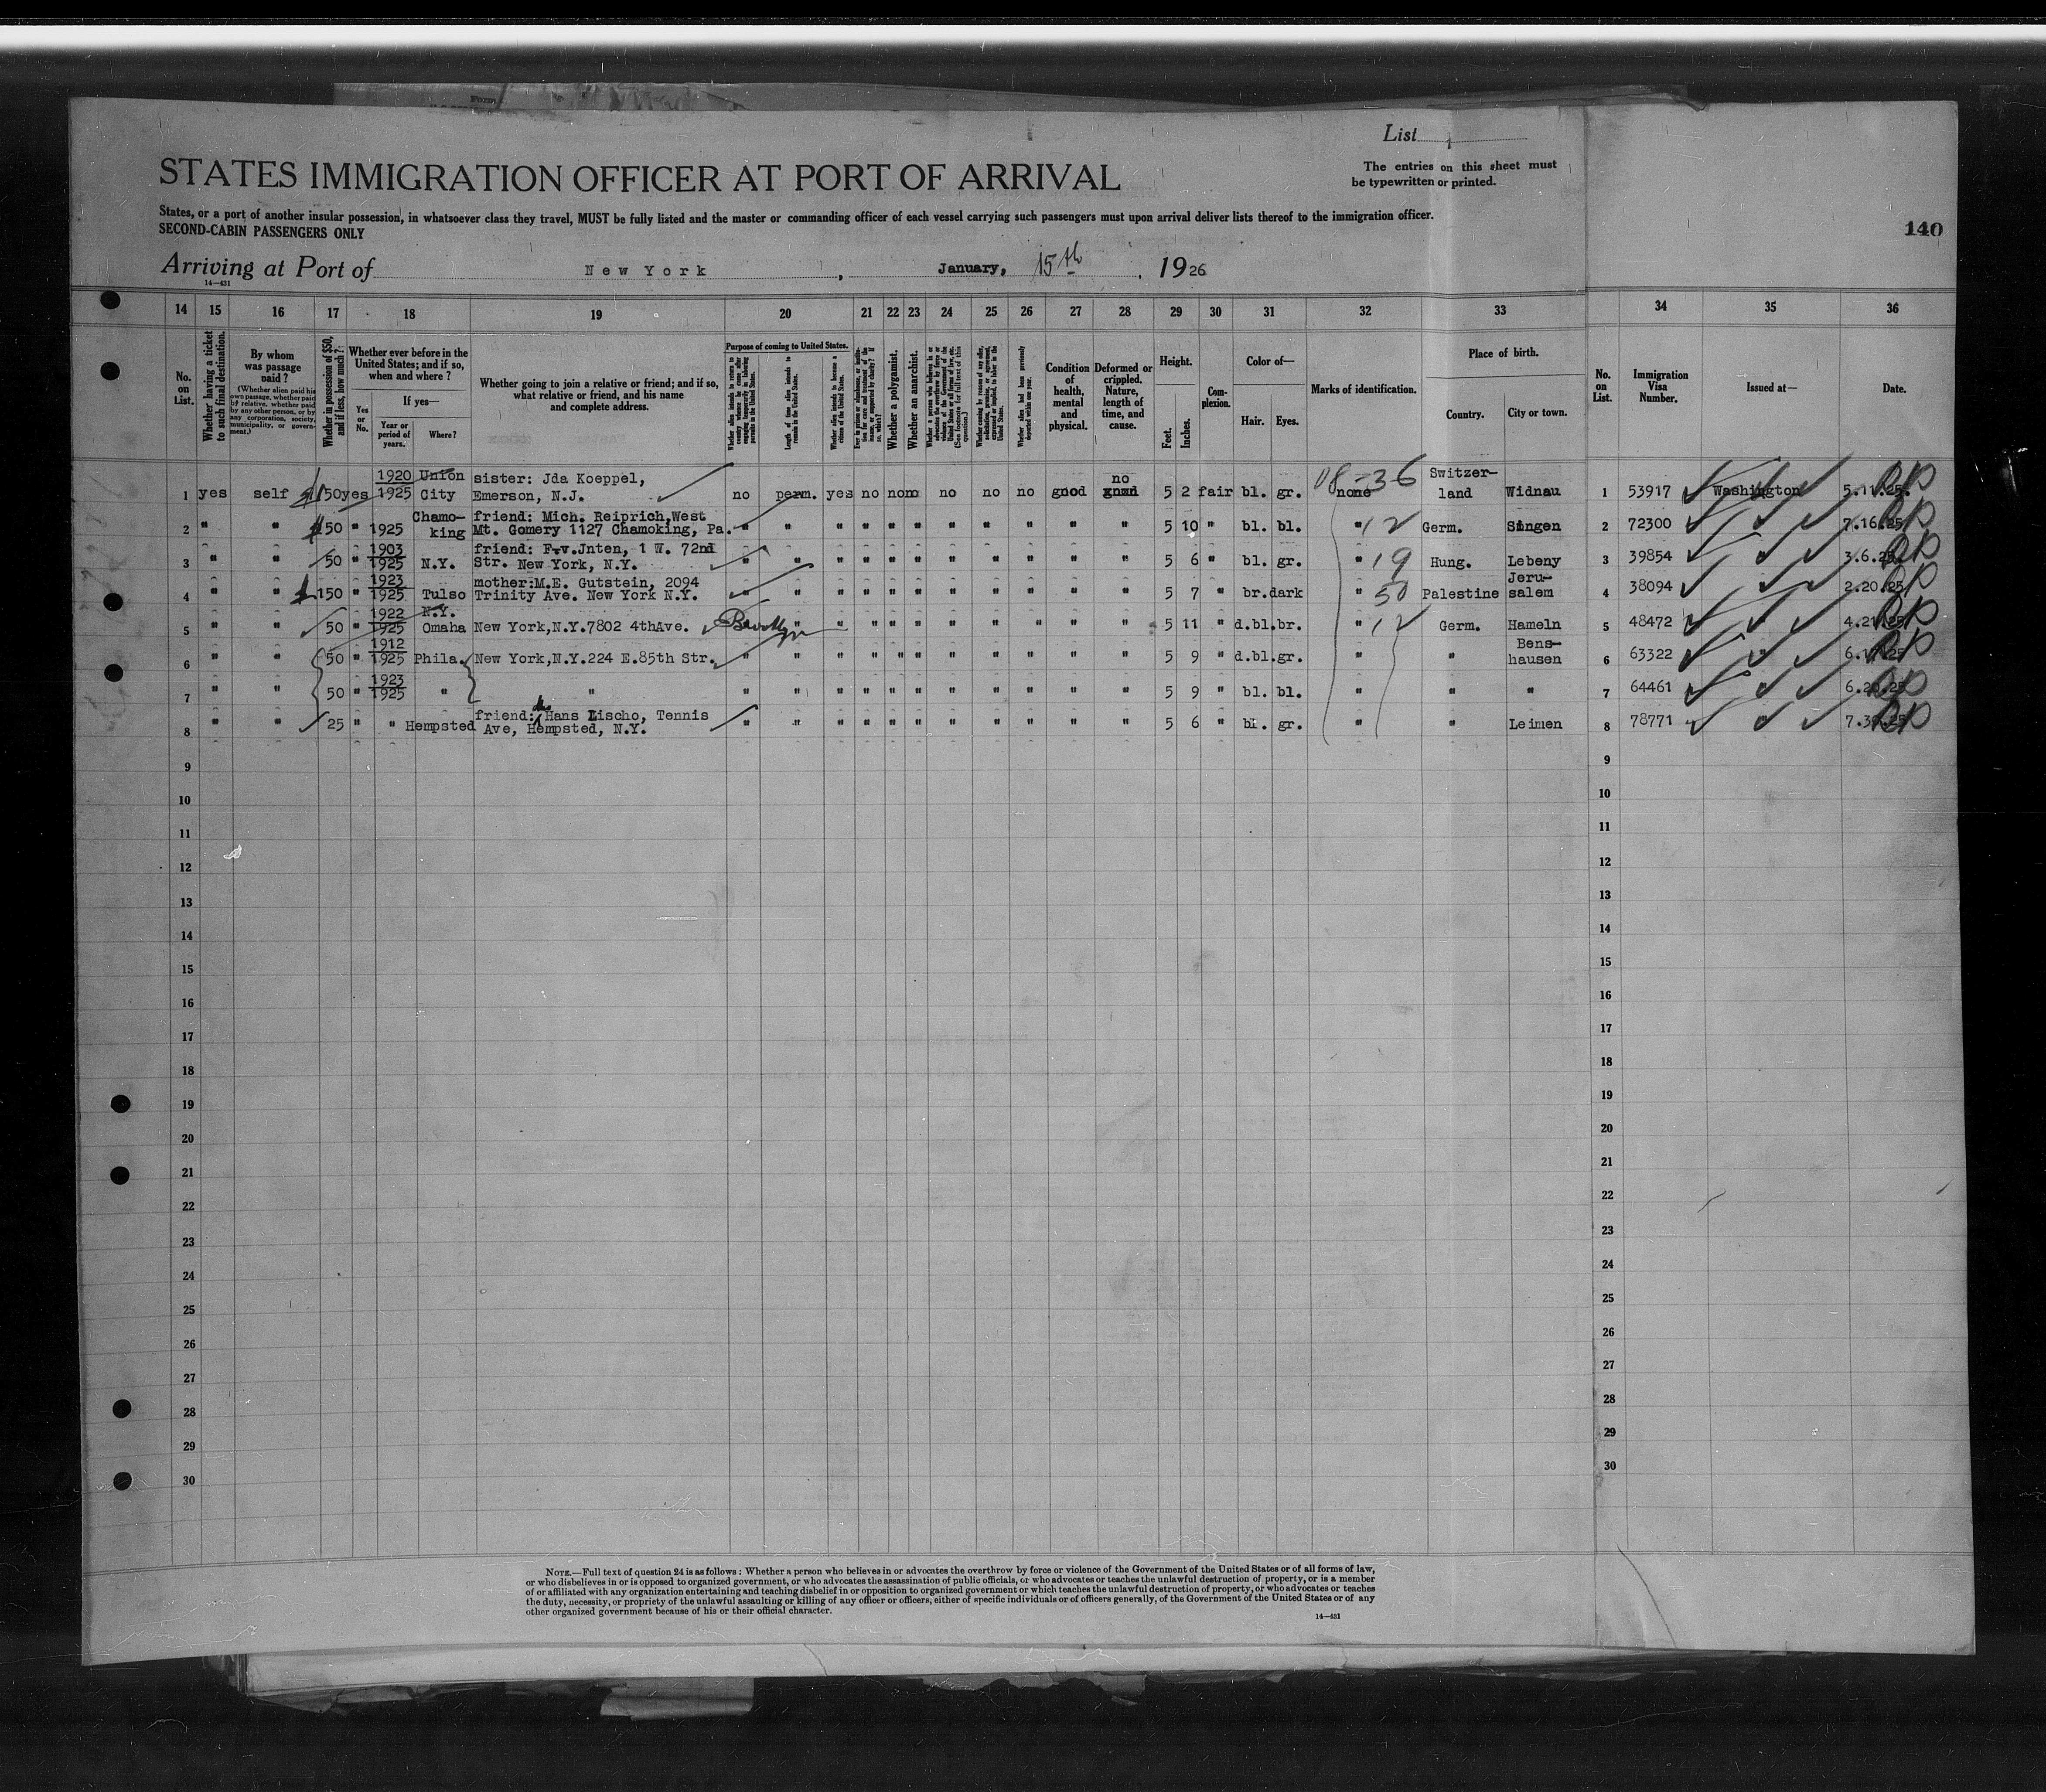 List 1
STATES IMMIGRATION OFFICER AT PORT OF ARRIVAL
The entries on this sheet must
be typewritten or printed.
States, or a port of another insular possession, in whatsoever class they travel, MUST be fully listed and the master or commanding officer of each vessel carrying such passengers must upon arrival deliver lists thereof to the immigration officer.
SECOND-CABIN PASSENGERS ONLY
140
Arriving at Port of New York, January, 15th, 1926
14—431
14 15 16 17 18 19 20 21 22 23 24 25 26 27 28 29 30 31 32 33 34 35 36
No. on List.
Whether having a ticket to such final destination.
By whom was passage paid?
(Whether alien paid his own passage, whether paid by relative, whether paid by any other person, or by any corporation, society, municipality, or government.)
Whether in possession of $50, and if less, how much?
Whether ever before in the United States; and if so, when and where?
Yes or No.
If yes—
Year or period of years.
Where?
Whether going to join a relative or friend; and if so, what relative or friend, and his name and complete address.
Purpose of coming to United States.
Length of time alien intends to remain in the United States.
Whether alien intends to become a citizen of the United States.
Whether a polygamist.
Whether an anarchist.
(See footnote for full text of this question.)
Whether alien had been previously deported within one year.
Condition of health, mental and physical.
Deformed or crippled. Nature, length of time, and cause.
Height.
Feet. Inches.
Complexion.
Color of—
Hair. Eyes.
Marks of identification.
Place of birth.
Country. City or town.
No. on List.
Immigration Visa Number.
Issued at—
Date.
1 yes self 150 yes 1920 1925 Union City sister: Jda Koeppel, Emerson, N.J. no perm. yes no no no no no good no 5 2 fair bl. gr. none 08-36 Switzerland Widnau 1 53917 Washington 5.11.25.
2 " " $50 " 1925 Chamoking friend: Mich. Reiprich, West Mt. Gomery 1127 Chamoking, Pa. " " " " " " " " " " " 5 10 " bl. bl. " 12 Germ. Singen 2 72300 7.16.25
3 " " 50 " 1903 1925 N.Y. friend: F.v.Jnten, 1 W. 72nd Str. New York, N.Y. " " " " " " " " " " " 5 6 " bl. gr. " 19 Hung. Lebeny 3 39854 3.6.25
4 " " 150 " 1923 1925 Tulso mother: M.E. Gutstein, 2094 Trinity Ave. New York N.Y. " " " " " " " " " " " 5 7 " br. dark " 50 Palestine Jerusalem 4 38094 2.20.25
5 " " 50 " 1922 1925 N.Y. Omaha New York, N.Y. 7802 4th Ave. Brooklyn " " " " " " " " " " 5 11 " d.bl. br. " 12 Germ. Hameln 5 48472 4.21.25
6 " " 50 " 1912 1925 Phila. New York, N.Y. 224 E. 85th Str. " " " " " " " " " " " 5 9 " d.bl. gr. " " Benshausen 6 63322
7 " " 50 " 1923 1925 " " " " " " " " " " " " " 5 9 " bl. bl. " " " 7 64461 6.20.25
8 " " 25 " " Hempsted friend: Hans Lischo, Tennis Ave, Hempsted, N.Y. " " " " " " " " " " " 5 6 " bl. gr. " " Leimen 8 78771
9 9
10 10
11 11
12 12
13 13
14 14
15 15
16 16
17 17
18 18
19 19
20 20
21 21
22 22
23 23
24 24
25 25
26 26
27 27
28 28
29 29
30 30
NOTE.—Full text of question 24 is as follows: Whether a person who believes in or advocates the overthrow by force or violence of the Government of the United States or of all forms of law,
or who disbelieves in or is opposed to organized government, or who advocates the assassination of public officials, or who advocates or teaches the unlawful destruction of property, or is a member
of or affiliated with any organization entertaining and teaching disbelief in or opposition to organized government or which teaches the unlawful destruction of property, or who advocates or teaches
the duty, necessity, or propriety of the unlawful assaulting or killing of any officer or officers, either of specific individuals or of officers generally, of the Government of the United States or of any
other organized government because of his or their official character.
14—431